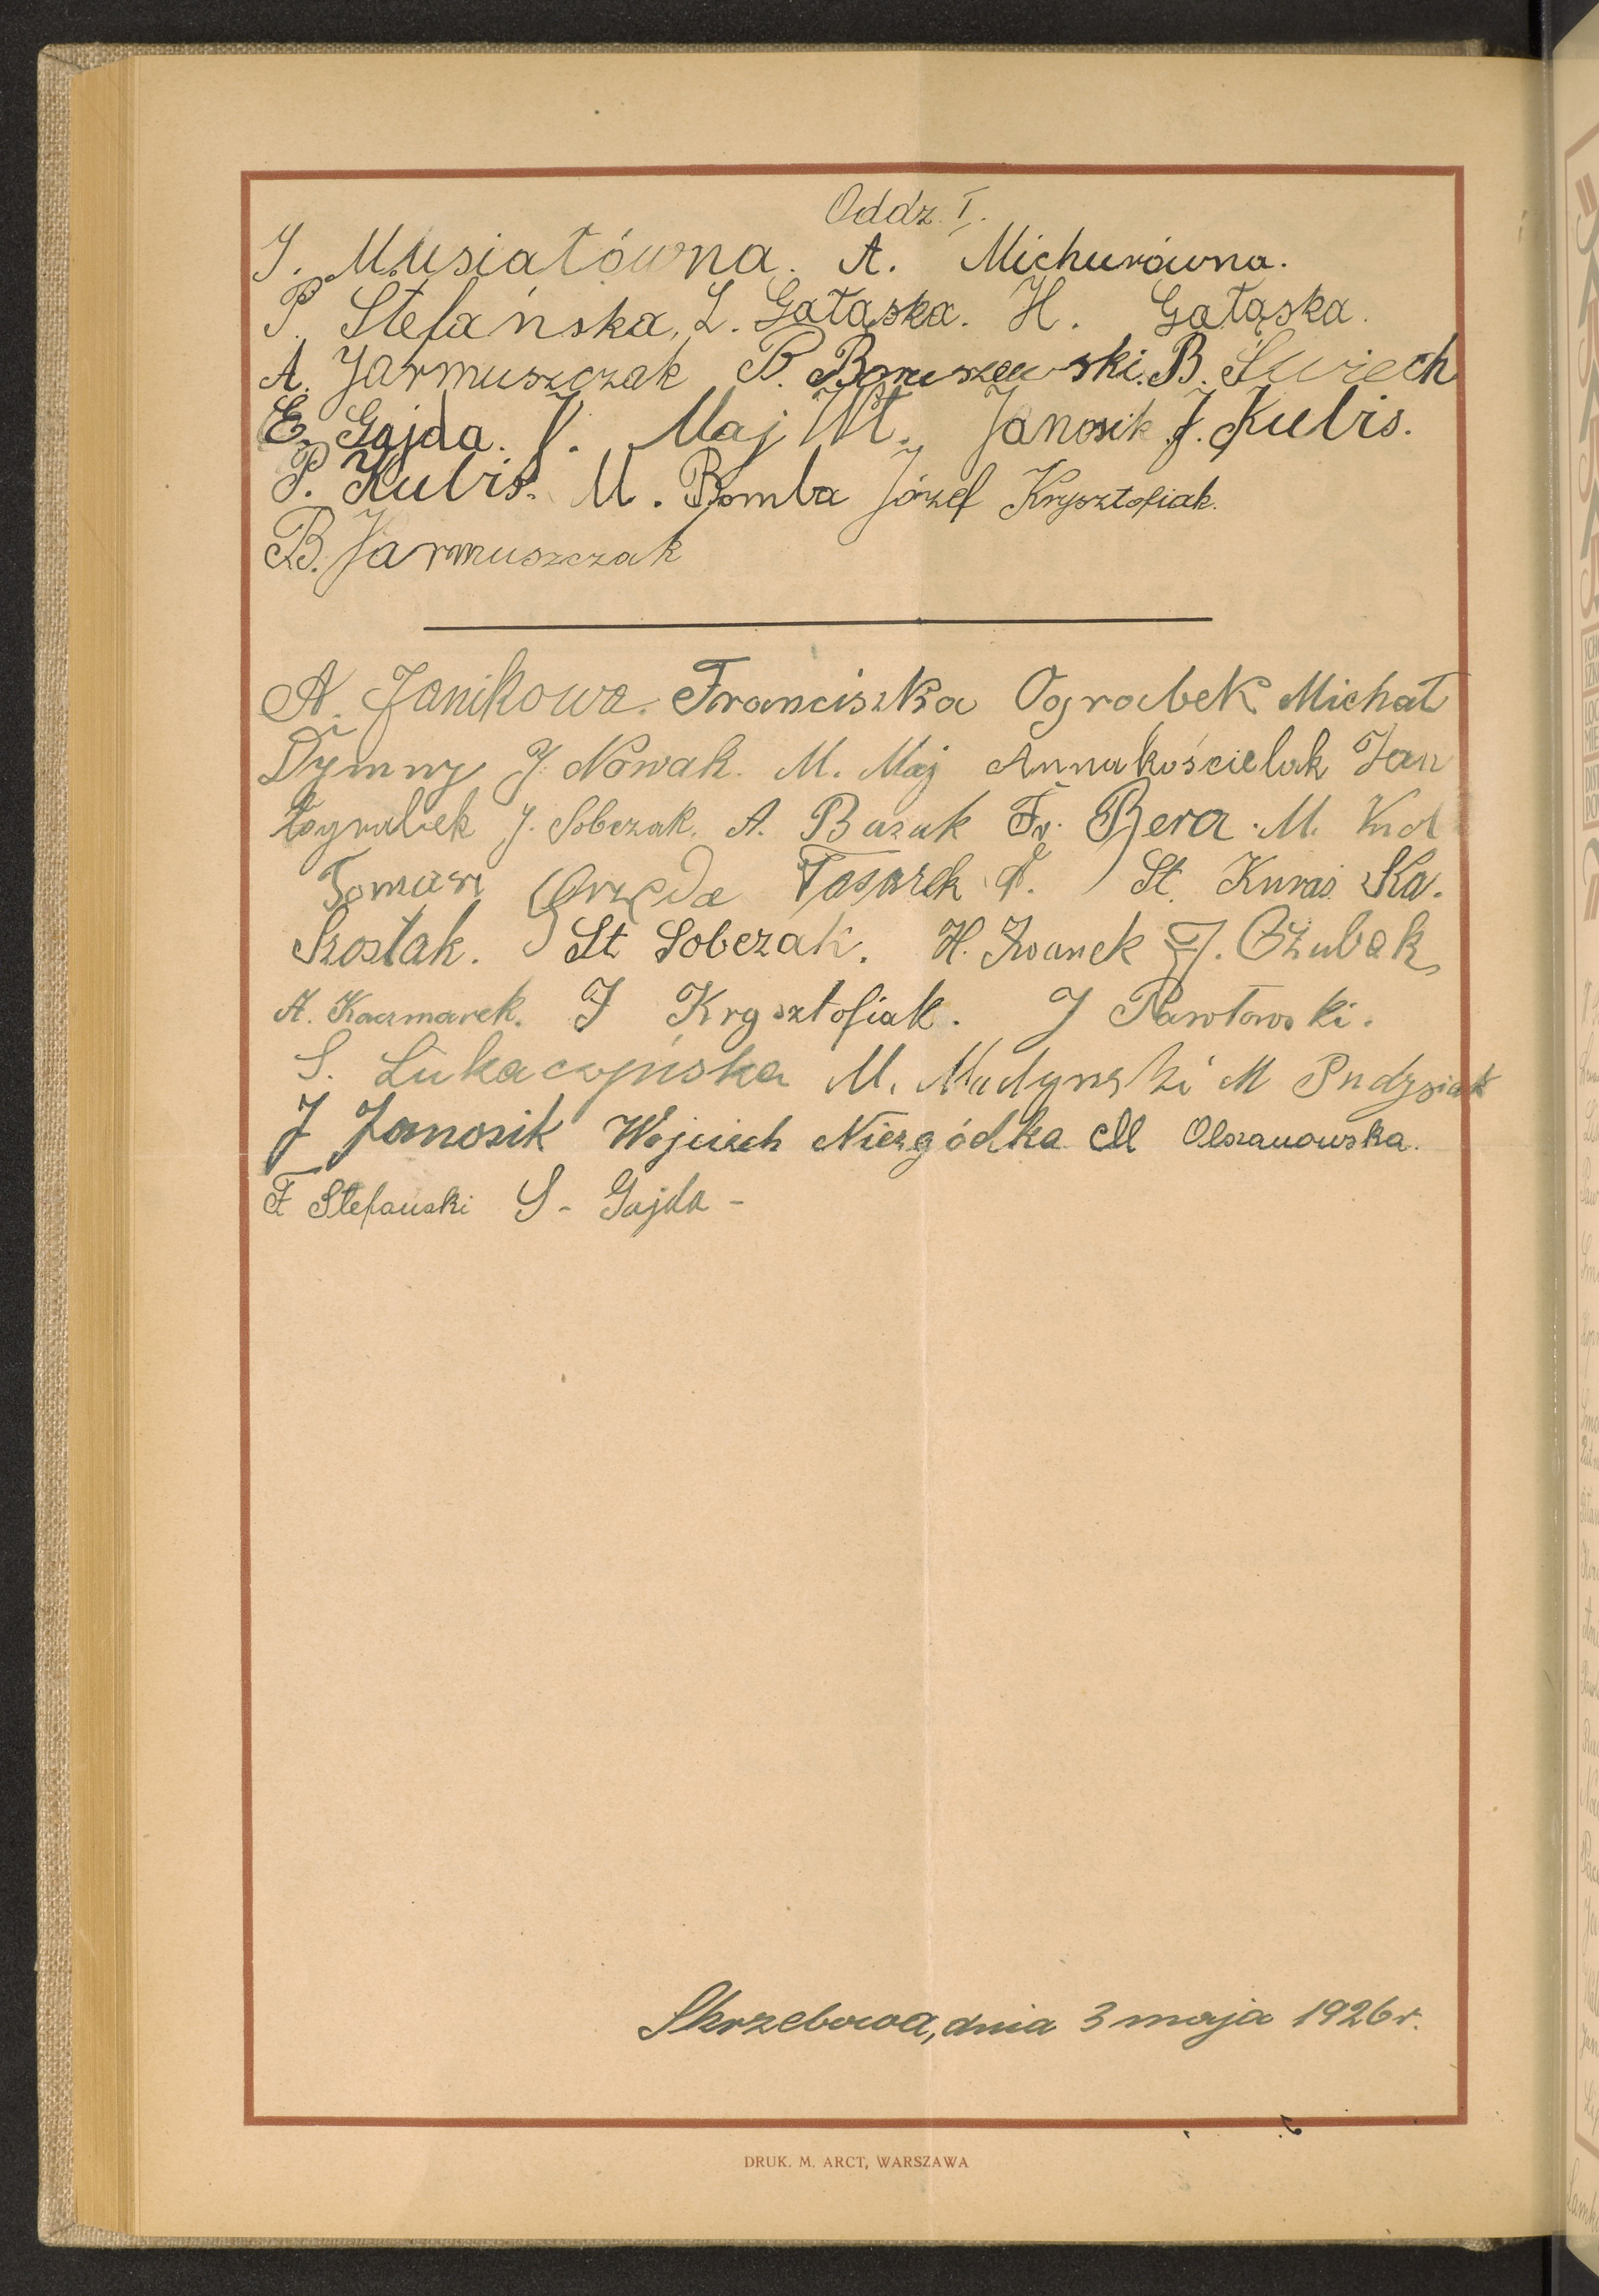 Oddz. I.
J. Musiałówna. A. Michurówna.
P. Stefańska, L. Gałąska. H. Gałąska.
A. Jarmuszczak P. Boruszewski. B. Świech
E. Gajda. J. Maj M. Janosik J. Kubis.
P. Kubis. M. Bomba Józef Krysztofiak.
B. Jarmuszczak
A. Janikowa. Franciszka Ograbek Michał
Dymny J. Nowak. M. Maj Anna Kościelak Jan
J. Sobczak. A. Basak Fr. Bera. M.
Tomasz Orzęda F. St. Kuraś Ka.
Szostak. St Sobczak. H. Iwanek J.
A. Kaczmarek. J Krysztofiak. J Pawłowski.
S. Lukaczyńska M. Madyński M
J Janosik Wojciech Niezgódka M Olszanowska.
F Stefański S - Gajda -
Skrzebowa, dnia 3 maja 1926 r.
DRUK. M. ARCT, WARSZAWA